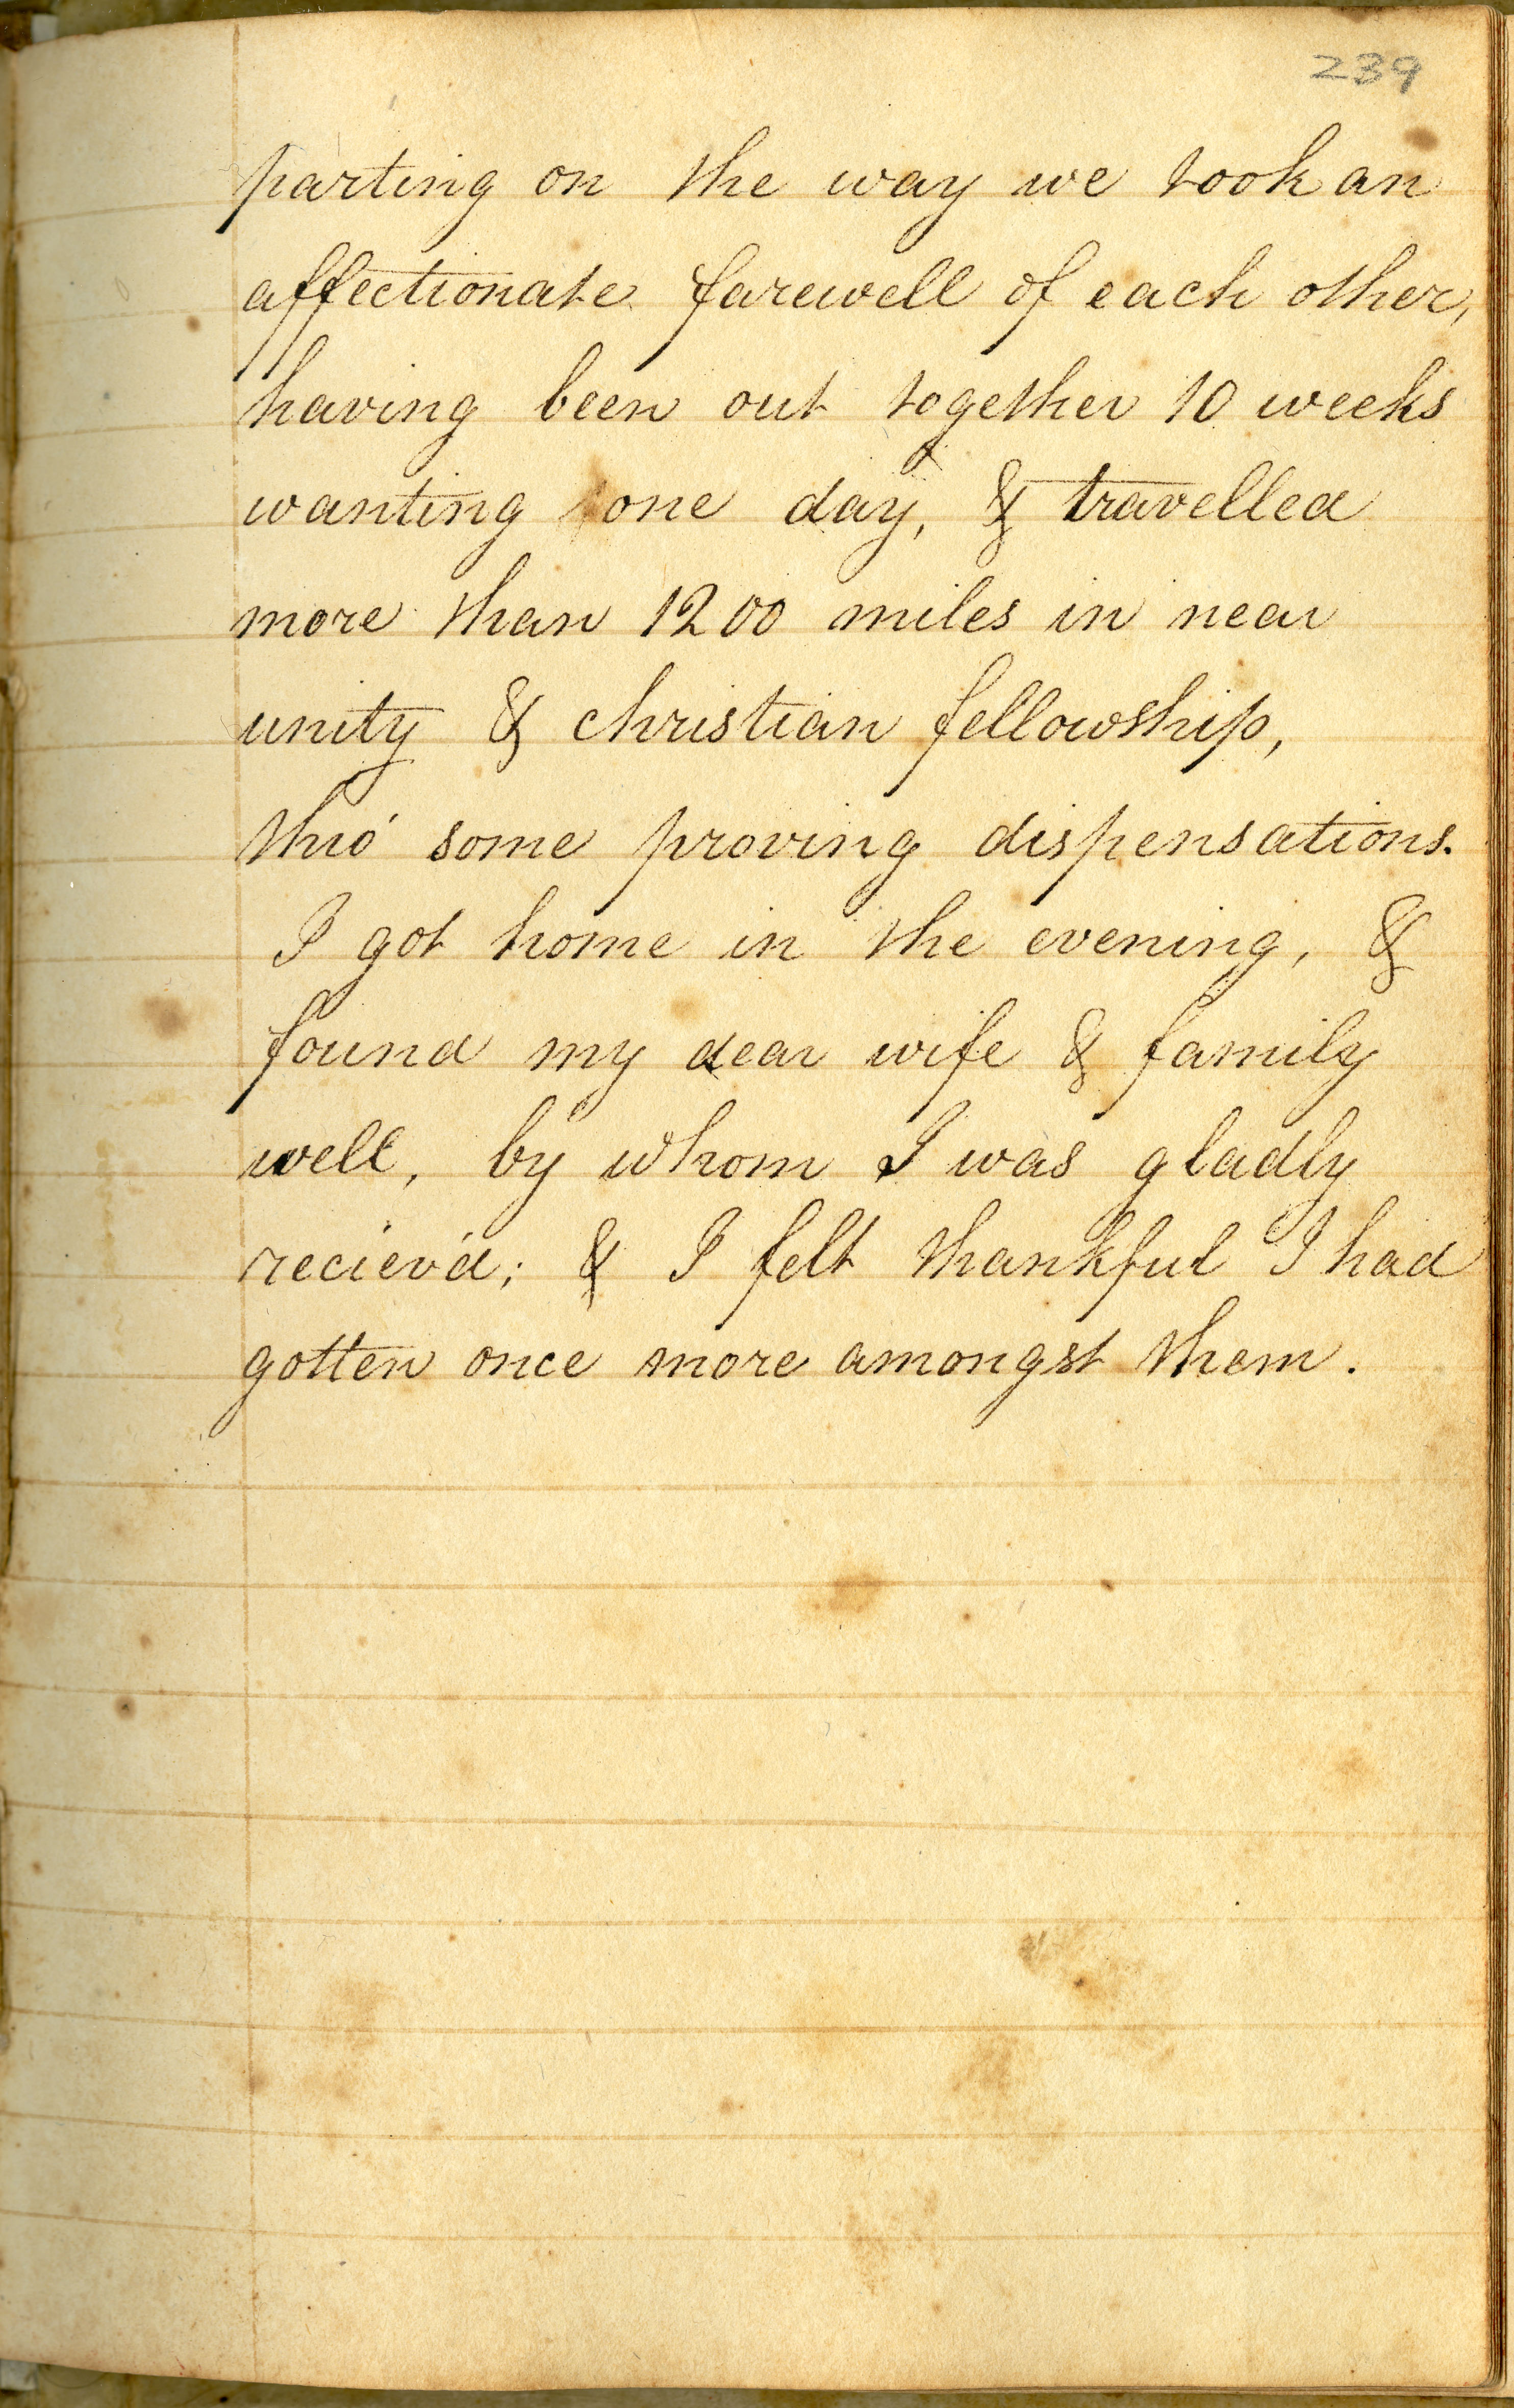 239
parting on the way we took an
affectionate farewell of each other,
having been out together 10 weeks
wanting one day, & travelled
more than 1200 miles in near
unity & christian fellowship,
thro' some proving dispensations.
I got home in the evening, &
found my dear wife & family
well, by whom I was gladly
reciev'd; & I felt thankful I had
gotten once more amongst them.